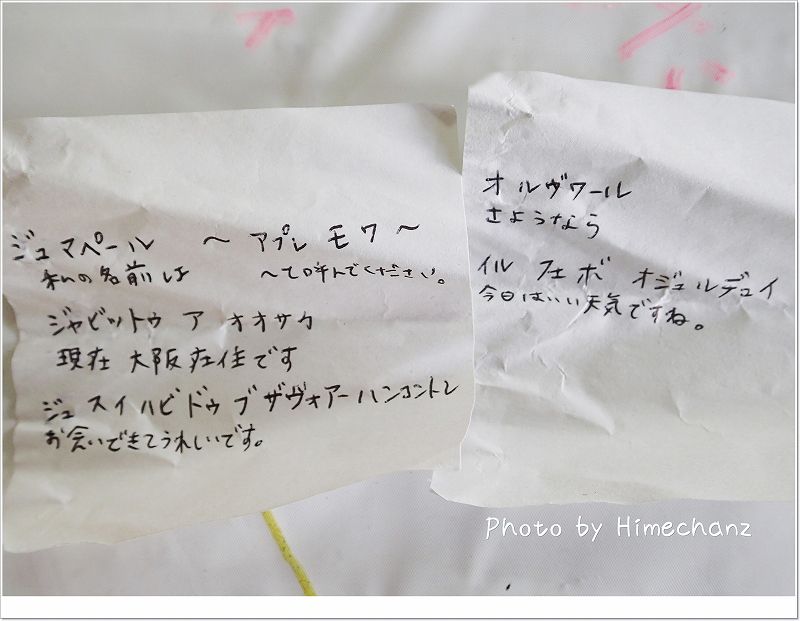 ジュマペール 〜 アプレ モワ 〜
私の名前は 〜て呼んでください。
ジャビットゥ ア オオサカ
現在 大阪在住です
ジュ スイ ハビ ドゥ ブ ザヴォアー ハンコントレ
お会いできてうれしいです。
オルヴワール
さようなら
イル フェ ボ オジュルデュイ
今日はいい天気ですね。
Photo by Himechanz